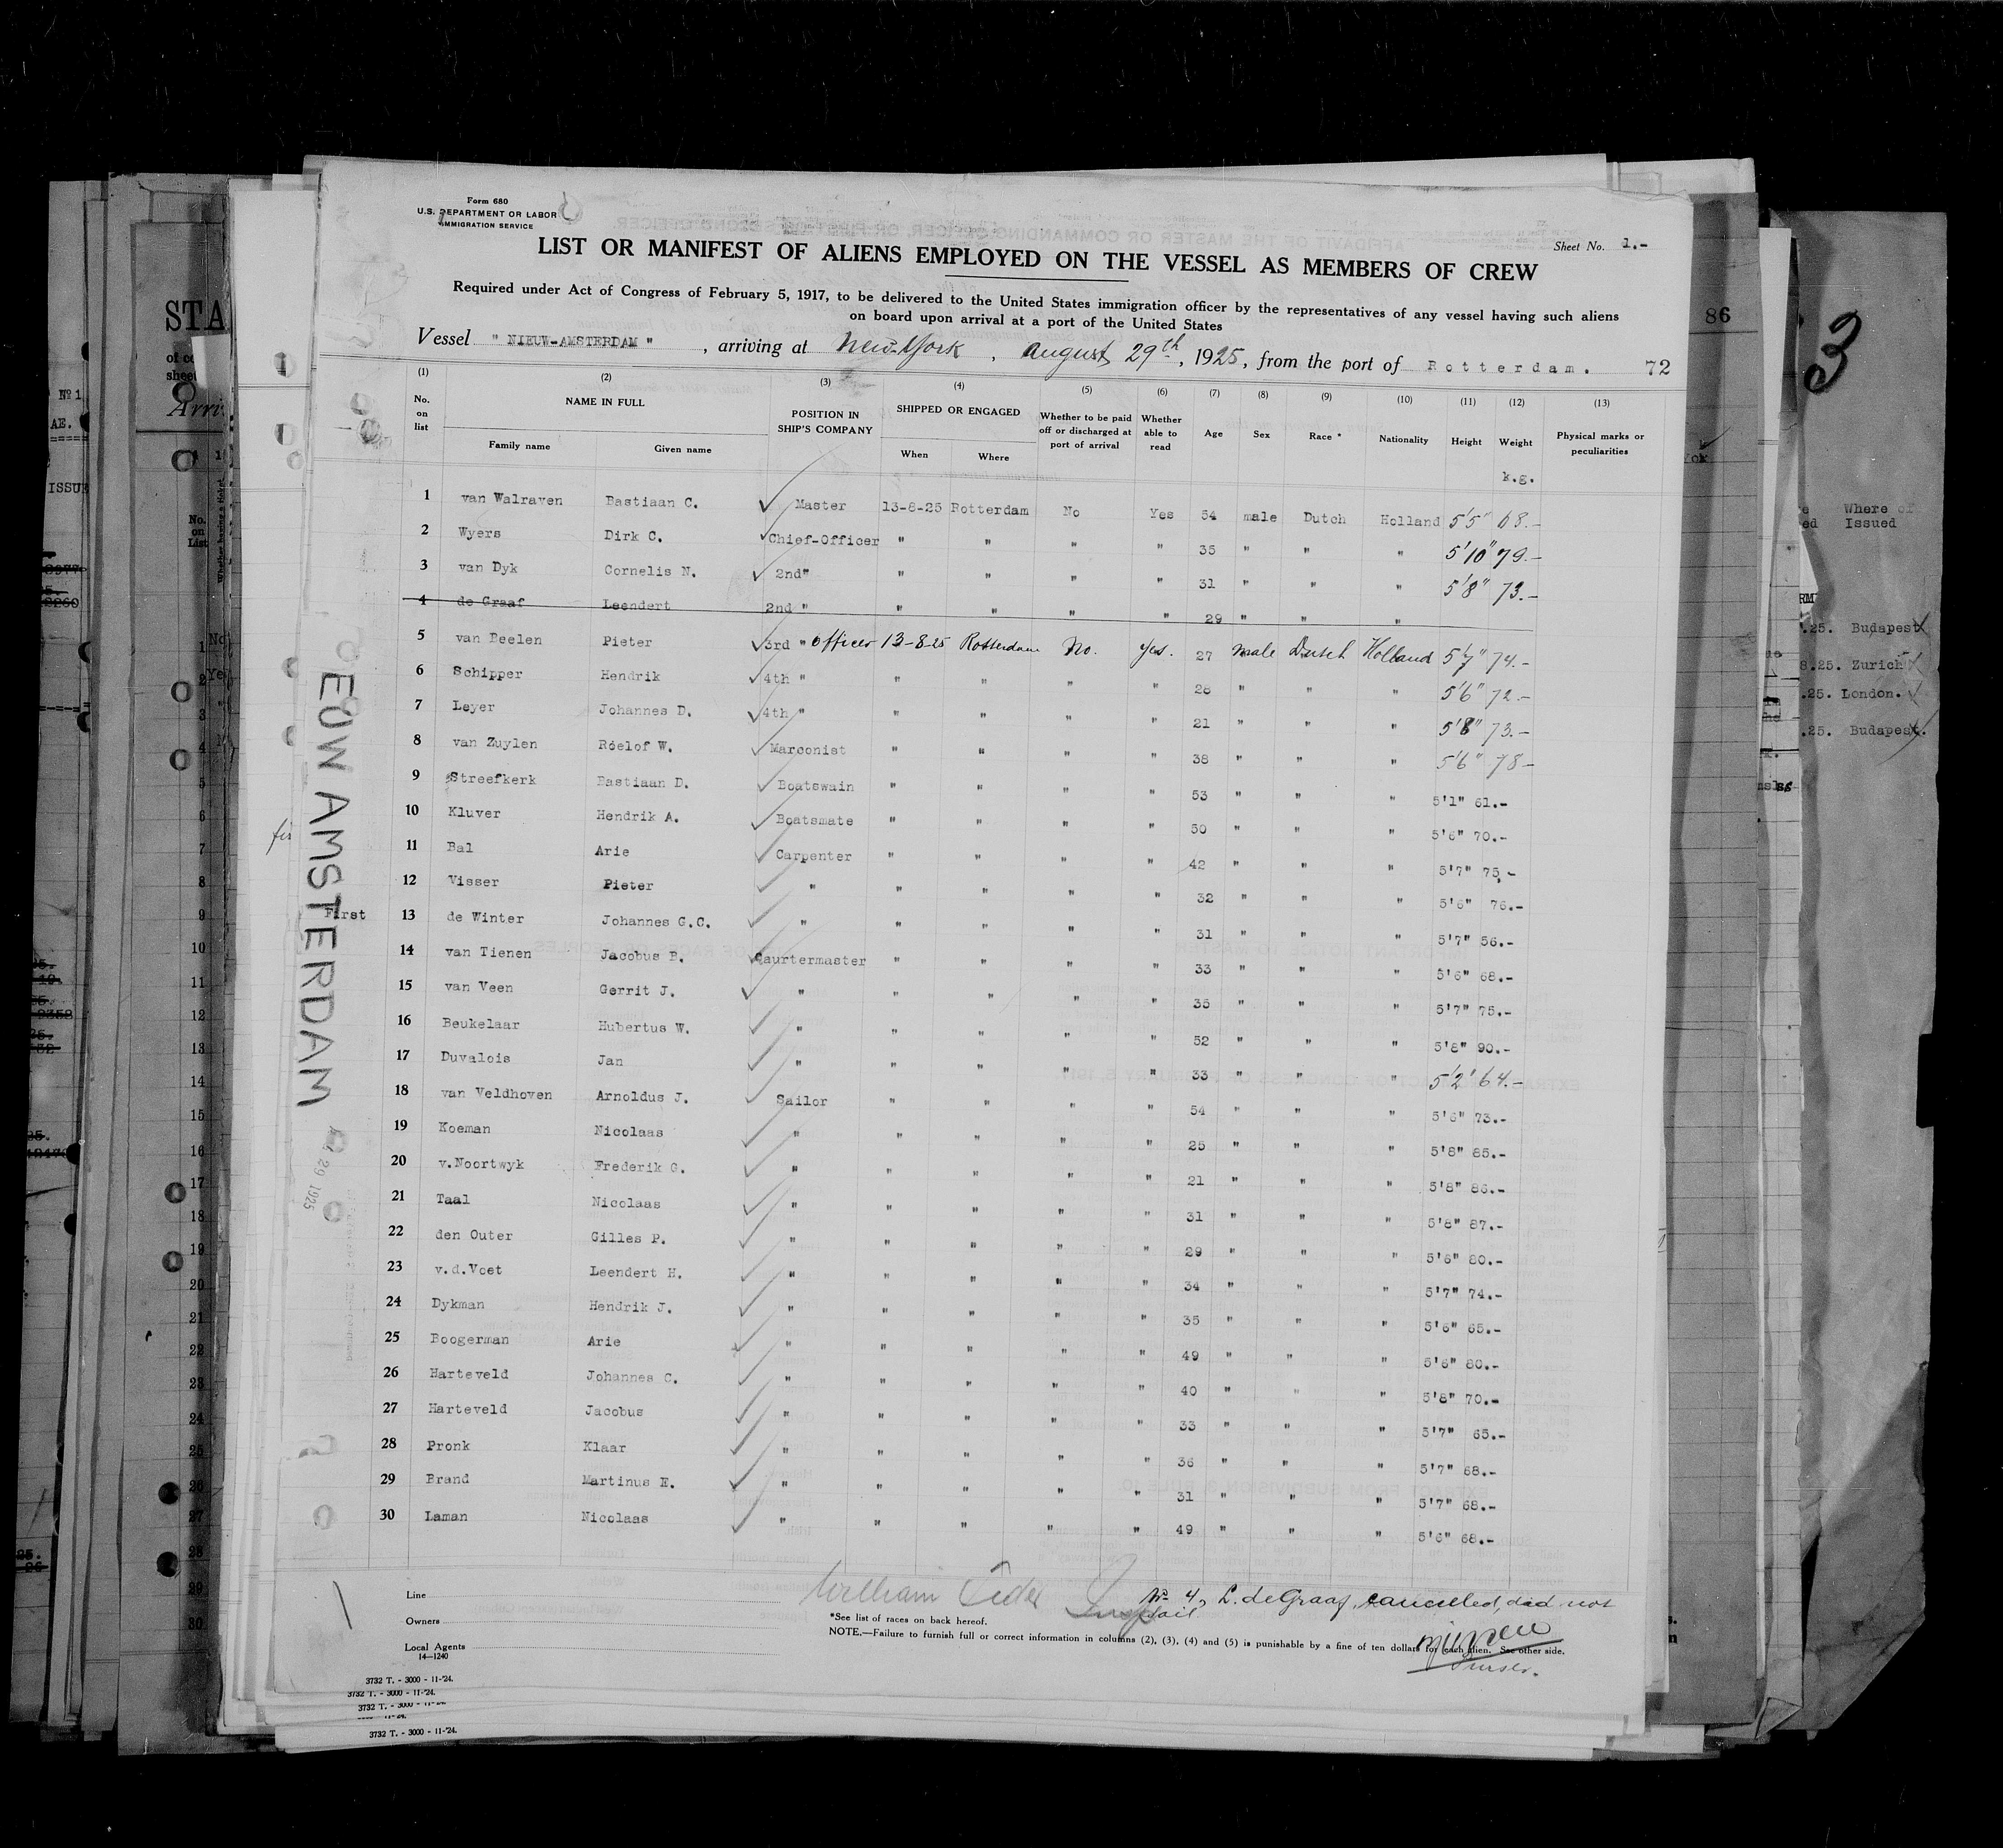 Form 680
U.S. DEPARTMENT OR LABOR
IMMIGRATION SERVICE
Sheet No. 1.-
LIST OR MANIFEST OF ALIENS EMPLOYED ON THE VESSEL AS MEMBERS OF CREW
Required under Act of Congress of February 5, 1917, to be delivered to the United States immigration officer by the representatives of any vessel having such aliens
on board upon arrival at a port of the United States
Vessel " NIEUW-AMSTERDAM ", arriving at New-York, August 29th, 1925, from the port of Rotterdam. 72
(1) (2) (3) (4) (5) (6) (7) (8) (9) (10) (11) (12) (13)
No. on list NAME IN FULL Family name Given name POSITION IN SHIP'S COMPANY SHIPPED OR ENGAGED When Where Whether to be paid off or discharged at port of arrival Whether able to read Age Sex Race * Nationality Height Weight Physical marks or peculiarities
k.g.
1 van Walraven Bastiaan C. Master 13-8-25 Rotterdam No Yes 54 male Dutch Holland 5'5" 68.-
2 Wyers Dirk C. Chief-Officer " " " " 35 " " " 5'10" 79.-
3 van Dyk Cornelis N. 2nd" " " " " 31 " " " 5'8" 73.-
4 de Graaf Leendert 2nd " " " " " 29 " " "
5 van Beelen Pieter 3rd " officer 13-8-25 Rotterdam No. yes. 27 male Dutch Holland 5'7" 74.-
6 Schipper Hendrik 4th " " " " " 28 " " " 5'6" 72.-
7 Leyer Johannes D. 4th " " " " " 21 " " " 5'8" 73.-
8 van Zuylen Roelof W. Marconist " " " " 38 " " " 5'6" 78-
9 Streefkerk Bastiaan D. Boatswain " " " " 53 " " " 5'1" 61.-
10 Kluver Hendrik A. Boatsmate " " " " 50 " " " 5'6" 70.-
11 Bal Arie Carpenter " " " " 42 " " " 5'7" 75.-
12 Visser Pieter " " " " " 32 " " " 5'6" 76.-
13 de Winter Johannes G.C. " " " " " 31 " " " 5'7" 56.-
14 van Tienen Jacobus B. Qaurtermaster " " " " 33 " " " 5'6" 68.-
15 van Veen Gerrit J. " " " " " 35 " " " 5'7" 75.-
16 Beukelaar Hubertus W. " " " " " 52 " " " 5'8" 90.-
17 Duvalois Jan " " " " " 33 " " " 5'2' 64.-
18 van Veldhoven Arnoldus J. Sailor " " " " 54 " " " 5'6" 73.-
19 Koeman Nicolaas " " " " " 25 " " " 5'8" 85.-
20 v.Noortwyk Frederik G. " " " " " 21 " " " 5'8" 86.-
21 Taal Nicolaas " " " " " 31 " " " 5'8" 87.-
22 den Outer Gilles P. " " " " " 29 " " " 5'6" 80.-
23 v.d.Voet Leendert H. " " " " " 34 " " " 5'7" 74.-
24 Dykman Hendrik J. " " " " " 35 " " " 5'6" 65.-
25 Boogerman Arie " " " " " 49 " " " 5'6" 80.-
26 Harteveld Johannes C. " " " " " 40 " " " 5'8" 70.-
27 Harteveld Jacobus " " " " " 33 " " " 5'7" 65.-
28 Pronk Klaar " " " " " 36 " " " 5'7" 68.-
29 Brand Martinus E. " " " " " 31 " " " 5'7" 68.-
30 Laman Nicolaas " " " " " 49 " " " 5'6" 68.-
First
EUW AMSTERDAM
29 1925
Line
Owners
Local Agents
14—1240
William
No 4, L. de Graaf, cancelled, did not
sail
Purser.
*See list of races on back hereof.
NOTE.—Failure to furnish full or correct information in columns (2), (3), (4) and (5) is punishable by a fine of ten dollars for each alien. See other side.
3732 T. - 3000 - 11-'24.
3732 T. - 3000 - 11-'24.
3732 T. - 3000 - 11-'24.
3732 T. - 3000 - 11-'24.
STA
Arri
ISSU
86
3
Where of
Issued
.25. Budapest
8.25. Zurich
.25. London.
.25. Budapest.